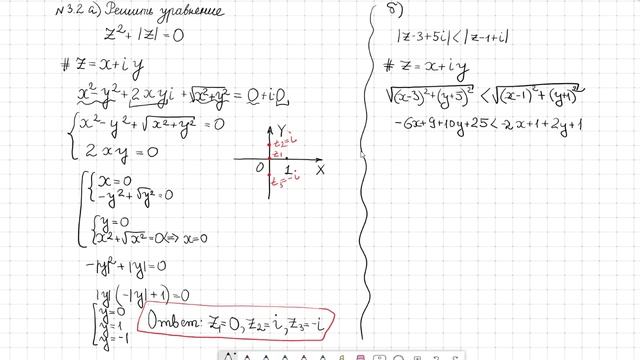 №3.2 а) Решить уравнение
z² + |z| = 0
# z = x + iy
x² - y² + 2xyi + √(x²+y²) = 0 + i·0
x² - y² + √(x²+y²) = 0
2xy = 0
x = 0
-y² + √y² = 0
y = 0
x² + √x² = 0 <=> x = 0
-|y|² + |y| = 0
|y|(-|y|+1) = 0
y = 0
y = 1
y = -1
Ответ: z₁=0, z₂=i, z₃=-i
Y
z₂=i
z₁
0 1 X
z₃=-i
б)
|z-3+5i| < |z-1+i|
# z = x + iy
√((x-3)²+(y+5)²) < √((x-1)²+(y+1)²)
-6x+9+10y+25 < -2x+1+2y+1